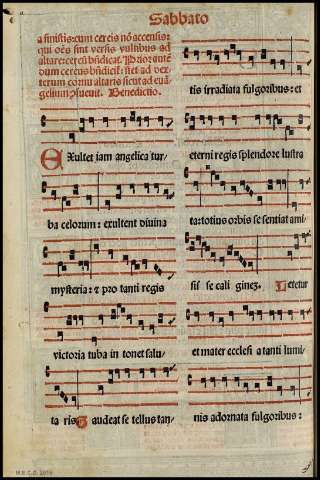 Sabbato
a sinistis: cum cereis nō accensis:
qui oēs sint versis vultibus ad
altare: cereū bñdicat. Prior autē
dum cereus bñdicit: stet ad dex-
terum cornu altaris sicut ad euā-
gelium ꝯsueuit. Benedictio.
EXultet iam angelica tur-
ba celorum: exultent diuina
mysteria: ⁊ pro tanti regis
victoria tuba intonet salu-
taris Gaudeat se tellus tan-
tis irradiata fulgoribus: et
eterni regis splendore lustra
ta: totius orbis se sentiat ami-
sisse caliginē. Letetur
et mater ecclesia tanti lumi-
nis adornata fulgoribus: